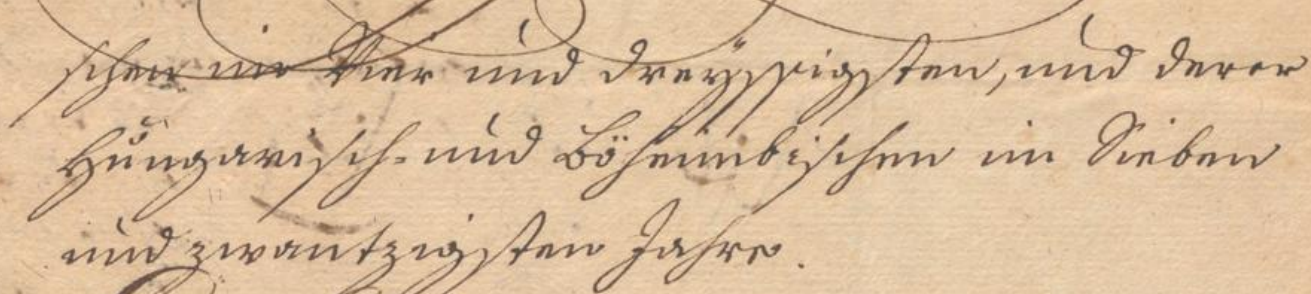 schen im Vier und dreyssigsten, und derer
Hungarisch- und Böheimbischen im Sieben
und zwantzigsten Jahre.